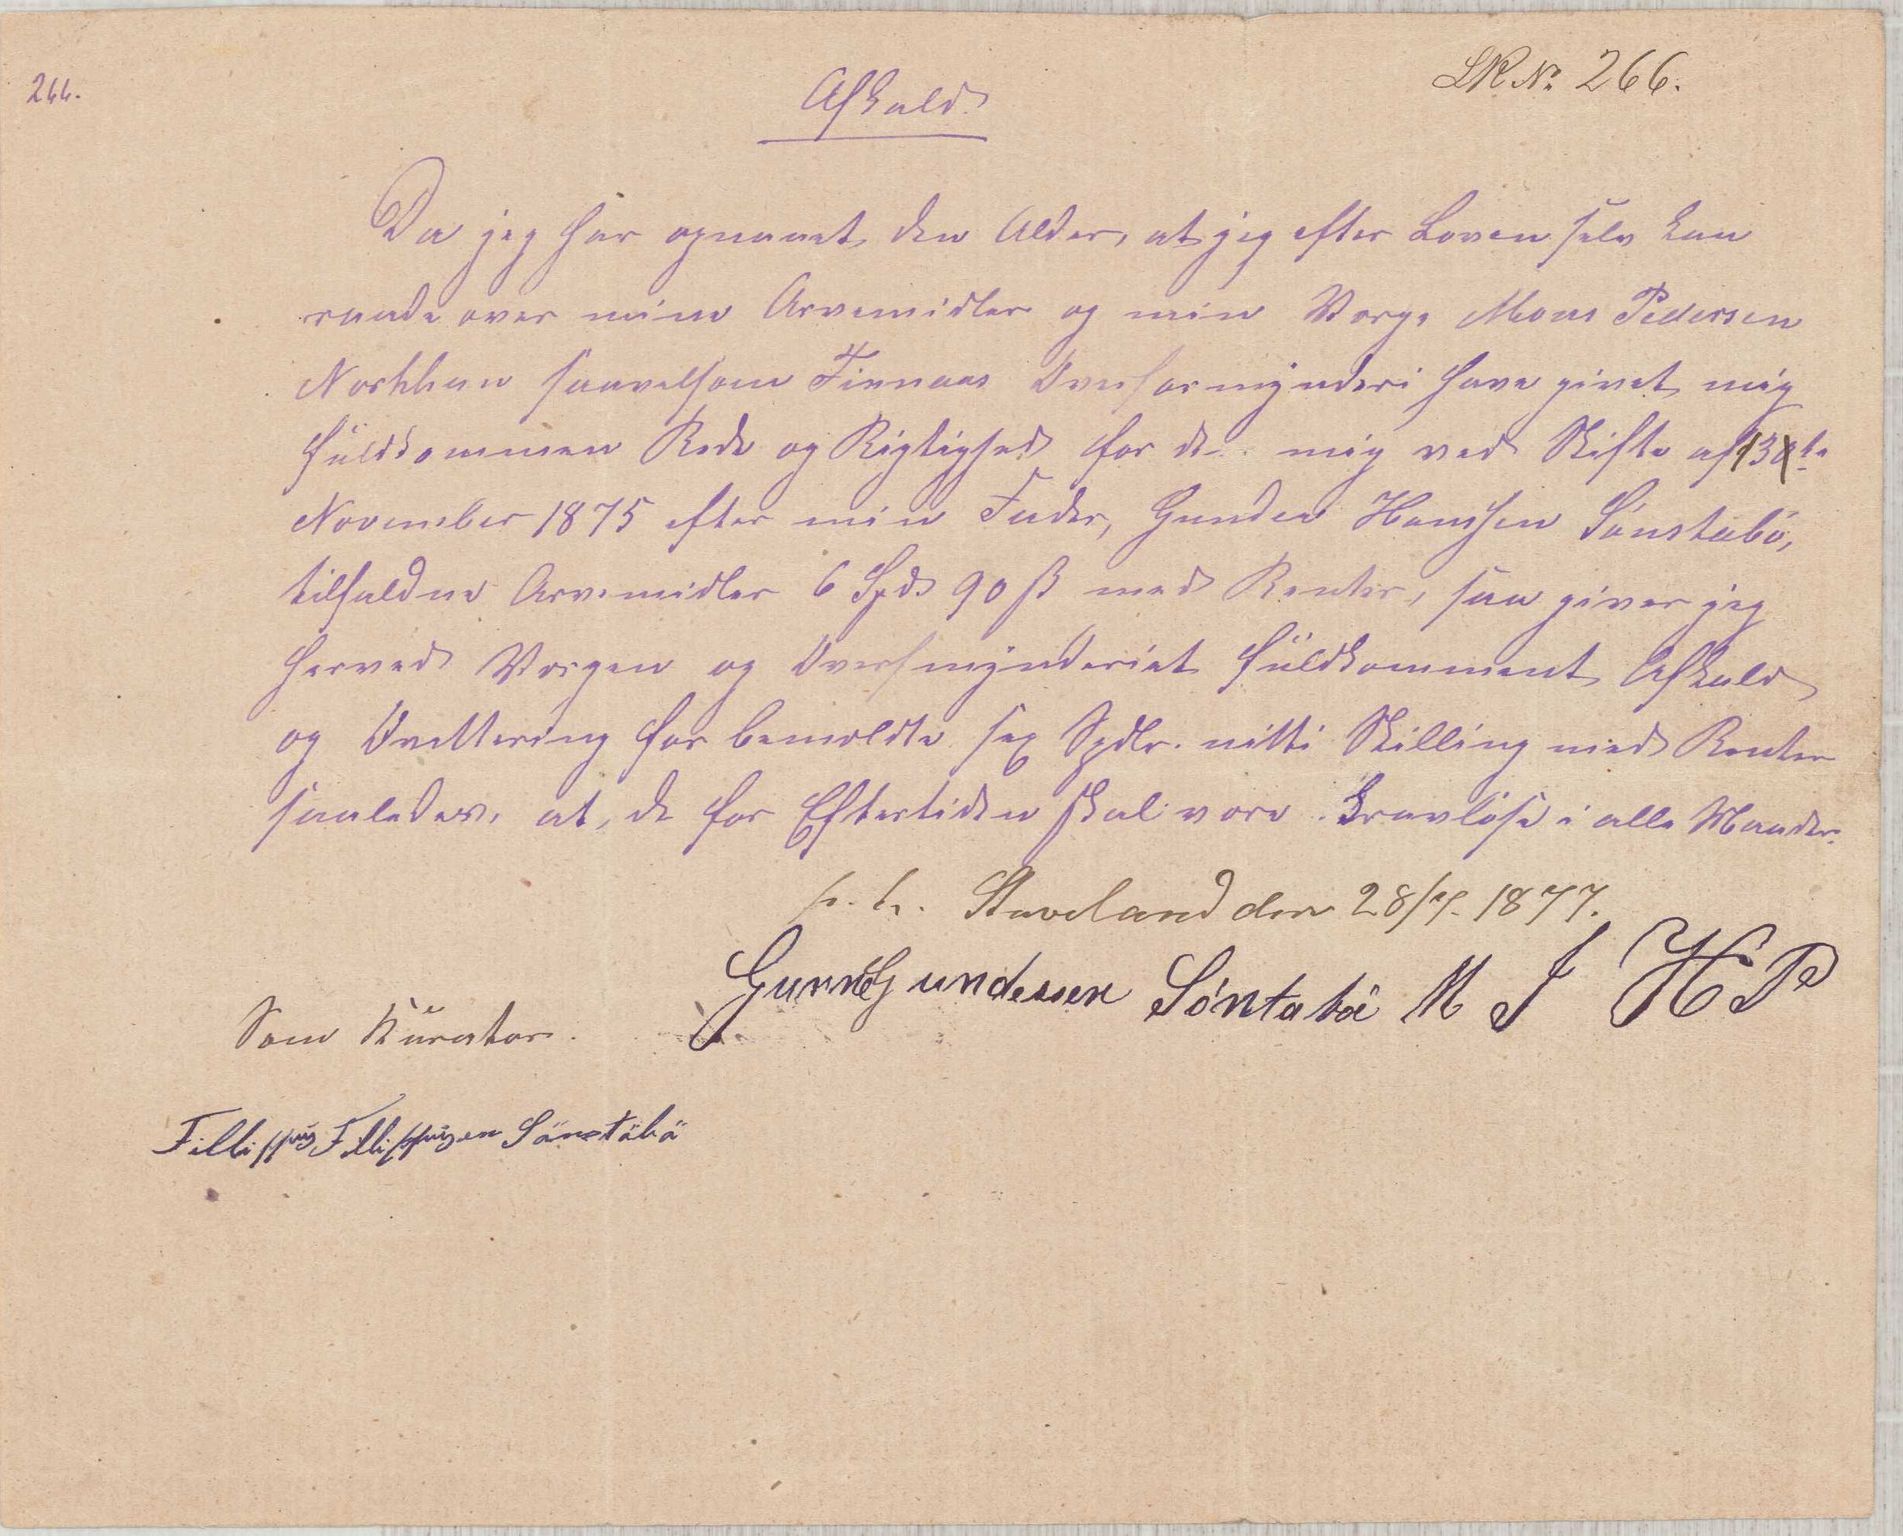 266.
LR No 266.
Afkald
Da jeg har opnaaet den Alder, at jeg efter Loven selv kan
raade over mine Arvemidler og min Verge Mons Pedersen
saavelsom Finnaas Overformynderi have givet mig
fuldkommen Rede og Rigtighed for de mig ved Skifte af
November 1875 efter min Fader, Gunder Hansen Sönstabö,
tilfaldne Arvemidler 6 Spd 90 ß med Renter, saa giver jeg
herved Vergen og Overfmynderiet fuldkomment Afkald
og Qvittering for bemeldte sex Spdlr. nitti Skilling med Renter
saaledes, at de for Eftertiden skal være kravlöse i alle Maader.
p. t. Staveland den 28/7. 1877.
Gundessen Söntabö M I H P
Som Kurator.
Sönstabö